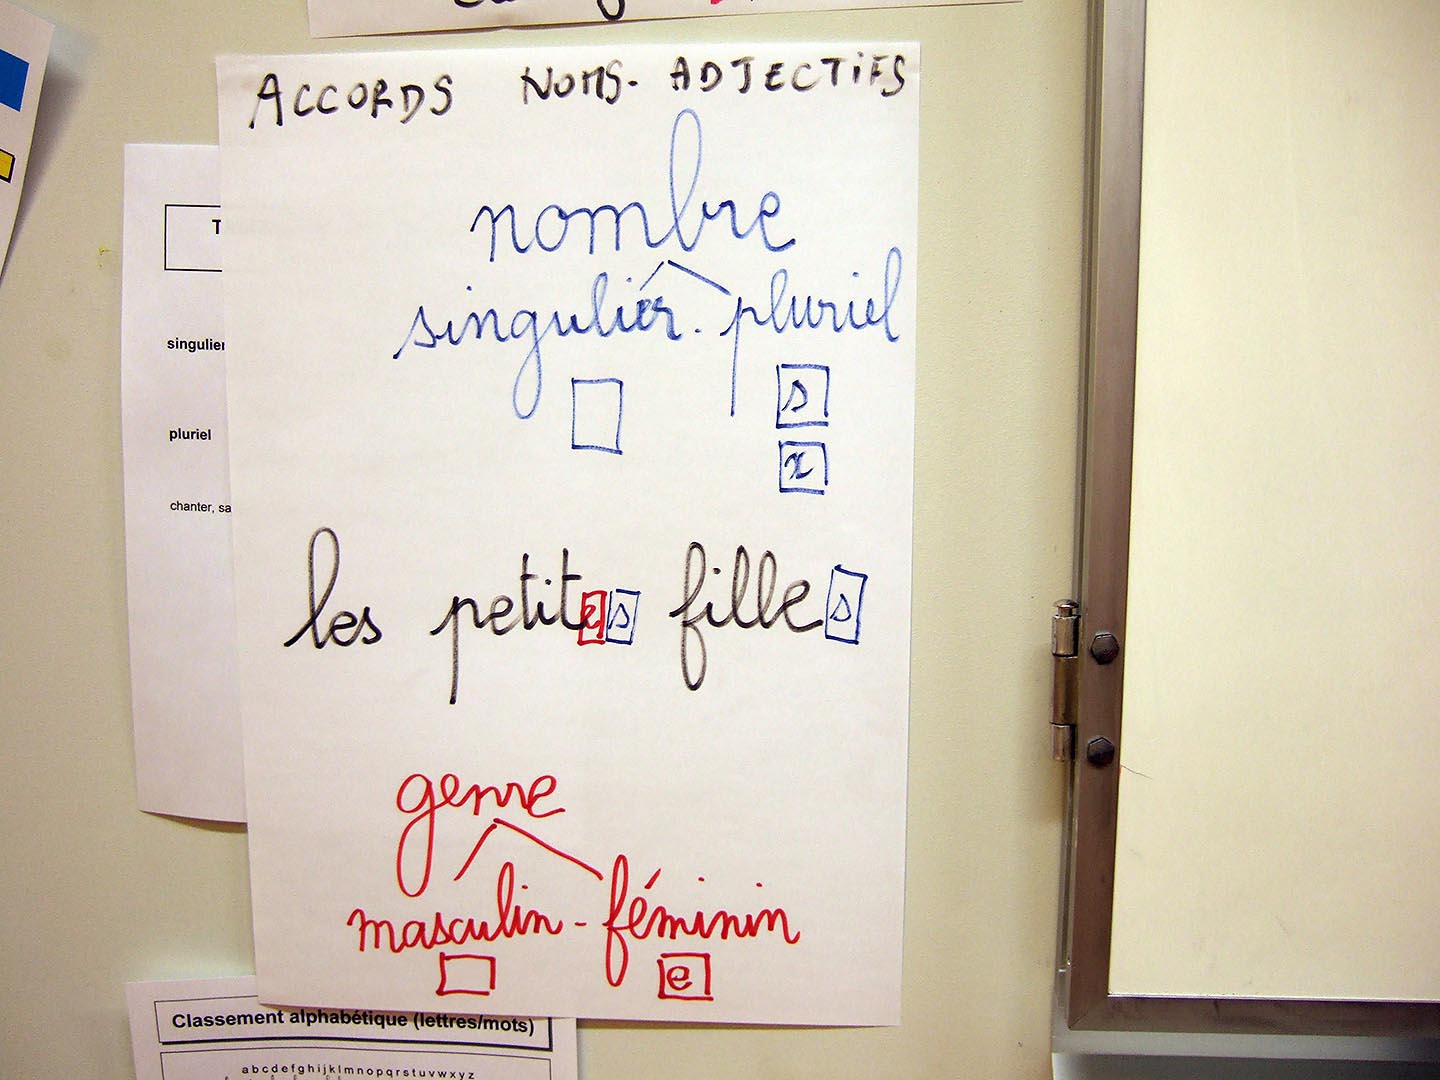 ACCORDS NOMS-ADJECTIFS
nombre
singulier - pluriel
s
x
les petites filles
genre
masculin - féminin
e
singulier
pluriel
chanter, sa
Classement alphabétique (lettres/mots)
a b c d e f g h i j k l m n o p q r s t u v w x y z